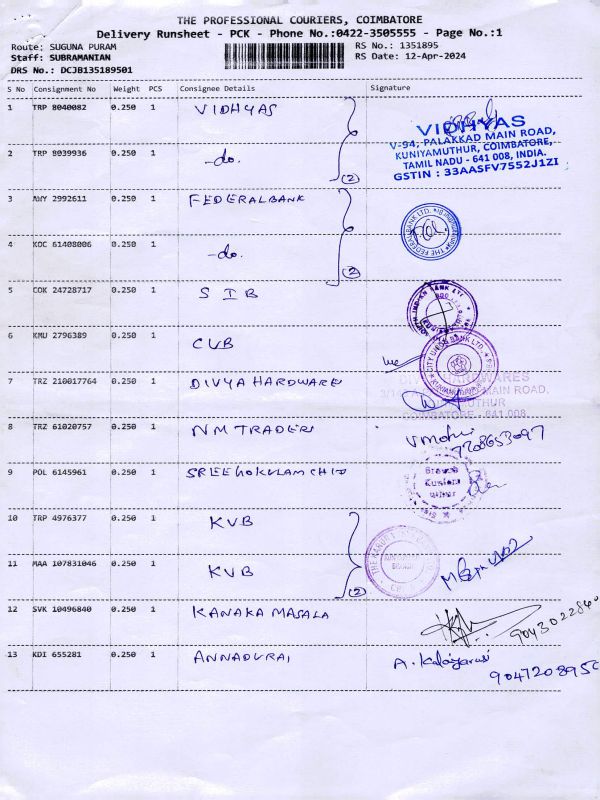 THE PROFESSIONAL COURIERS, COIMBATORE
Delivery Runsheet - PCK - Phone No.:0422-3505555 - Page No.:1
Route: SUGUNA PURAM RS No.: 1351895
Staff: SUBRAMANIAN RS Date: 12-Apr-2024
DRS No.: DCJB135189501
S No Consignment No Weight PCS Consignee Details Signature
1 TRP 8040082 0.250 1 VIDHYAS
VIDHYAS
V-94, PALAKKAD MAIN ROAD,
KUNIYAMUTHUR, COIMBATORE,
TAMIL NADU - 641 008, INDIA.
GSTIN : 33AASFV7552J1ZI
2 TRP 8039936 0.250 1 -do.
(2)
3 AWY 2992611 0.250 1 FEDERALBANK
THE FEDERAL BANK LTD.
4 KDC 61408006 0.250 1 -do.
(2)
5 COK 24728717 0.250 1 SIB
SOUTH INDIAN BANK LTD
6 KMU 2796389 0.250 1 CUB
CITY UNION BANK LTD.
7 TRZ 210017764 0.250 1 DIVYA HARDWARE
DIVYA HARDWARES
MAIN ROAD,
COIMBATORE - 641 008.
8 TRZ 61020757 0.250 1 NM TRADERS
7708653097
9 POL 6145961 0.250 1 SREE GOKULAM CHIT
10 TRP 4976377 0.250 1 KVB
THE KARUR
11 MAA 107831046 0.250 1 KVB
(2)
12 SVK 10496840 0.250 1 KANAKA MASALA
13 KDI 655281 0.250 1 ANNADURAI
A. Kalaiyarasi